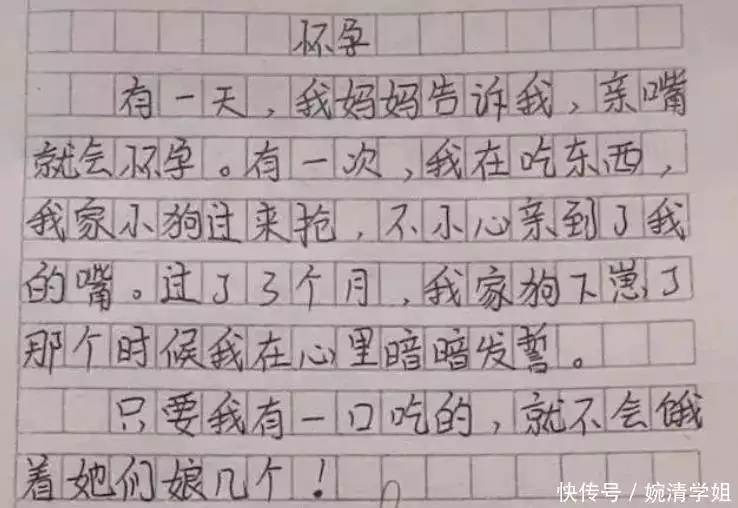 怀孕
有一天，我妈妈告诉我，亲嘴
就会怀孕。有一次，我在吃东西，
我家小狗过来抢，不小心亲到了我
的嘴。过了3个月，我家狗下崽了
那个时候我在心里暗暗发誓。
只要我有一口吃的，就不会饿
着她们娘几个！
快传号/婉清学姐